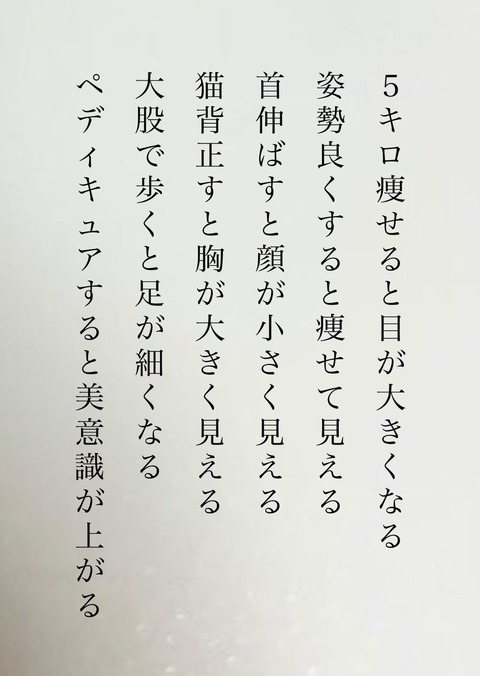 ５キロ痩せると目が大きくなる
姿勢良くすると痩せて見える
首伸ばすと顔が小さく見える
猫背正すと胸が大きく見える
大股で歩くと足が細くなる
ペディキュアすると美意識が上がる